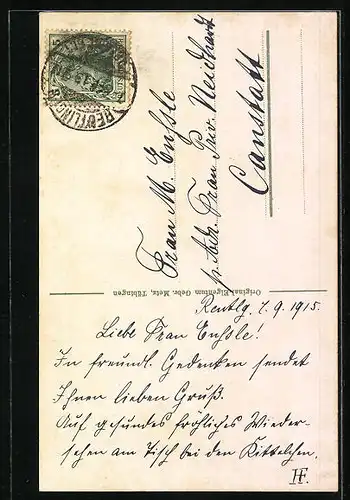 REUTLINGEN
Frau M. Enßle
p. Adr. Frau Priv. Neidhardt
Canstatt
Original-Eigentum Gebr. Metz, Tübingen
Reutlg. 7.9.1915.
Liebe Frau Enßle!
In freundl. Gedenken sendet
Ihnen lieben Gruß.
Auf gesundes fröhliches Wieder-
sehen am Tisch bei den Kittelchen.
HF.